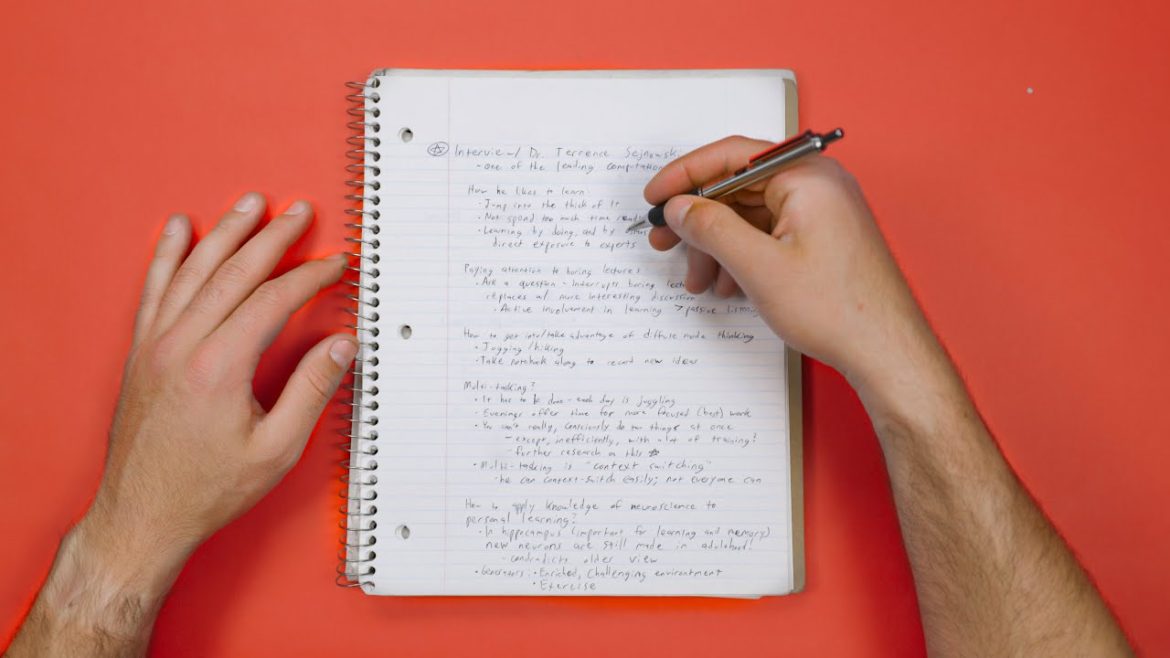 Interview w/ Dr. Terrence Sejnowski
- one of the leading computation
How he likes to learn:
- Jump into the thick of it
- Not spend too much time read
- Learning by doing, and by
direct exposure to experts
Paying attention to boring lectures
- Ask a question - Interrupts boring lect
replaces w/ more interesting discussion
- Active involvement in learning > passive listening
How to get into/take advantage of diffuse mode thinking
- Jogging/hiking
- Take notebook along to record new ideas
Multi-tasking?
- It has to be done - each day is juggling
- Evenings offer time for more focused (best) work
- You can't really, consciously do two things at once
- except, inefficiently, with a lot of training?
- further research on this
- Multi-tasking is "context switching"
- he can context-switch easily; not everyone can
How to apply knowledge of neuroscience to
personal learning?
- In hippocampus (important for learning and memory)
new neurons are still made in adulthood!
- contradicts older view
- Generators: • Enriched, challenging environment
• Exercise